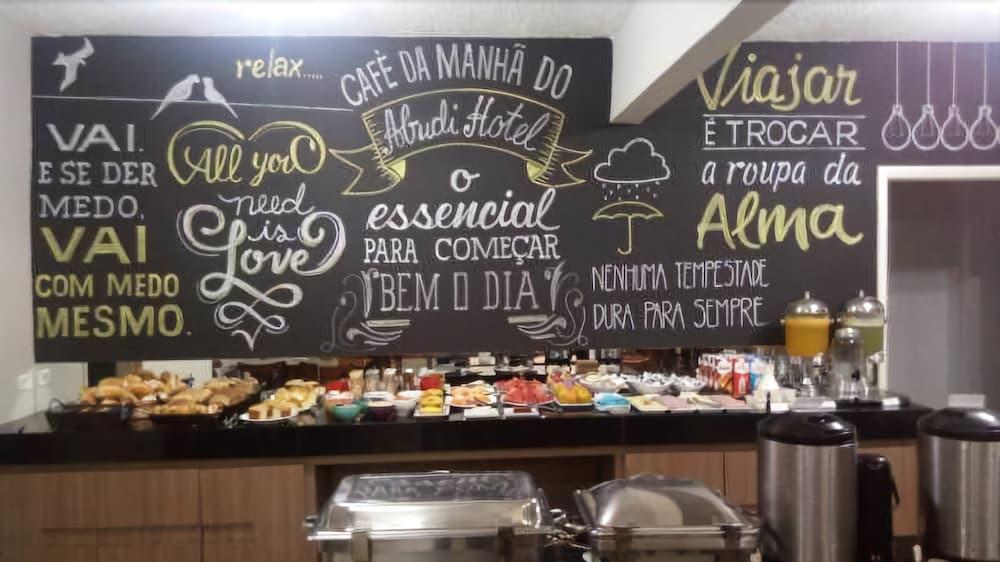 relax.....
VAI.
E SE DER
MEDO,
VAI
COM MEDO
MESMO.
All you
need
is
Love
CAFÈ DA MANHÃ DO
Abudi Hotel
o
essencial
PARA COMEÇAR
BEM O DIA
Viajar
É TROCAR
a roupa da
Alma
NENHUMA TEMPESTADE
DURA PARA SEMPRE